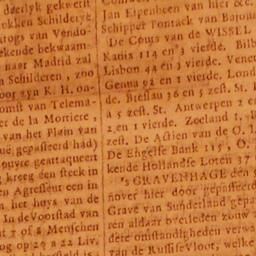 derlyk gekwetst
lekken Schilderye
rtogs van Vendo
ekende bekwaam
naar Madrid zal
n Schilderen, zoo
oor zyn K. H. on-
omst van Telema-
er de la Mortiere,
van het Plain van
ué gepasseerd had)
ouvre geattaqueert
kreeg den steek in
en Agressent een in
n het huys van de
In de Voorstad van
7 of 8 Menschen
og op 29 a 22 Liv.
Jan Eipenbeen van hier &c.
Schipper Fontack van Bajona
De Cours van de WISSEL
Kadix 114 en 3 vierde, Bilb
Lisbon 44 en 3 vierde, Vene
Genua 92 en 1 vierde, Lond
de, Breslau 36 en 5 zest. St.
a 5 zest. St. Antwerpen 2 en
2 en 1 vierde, Zeeland 1, B
zest. De Actien van de O. I.
De Engelse Bank 115, O.
kende Hollandse Loten 37
's GRAVENHAGE den 9
nover hier door gepasseerd
Grave van Sunderland gepa
ren aldaar overleden zouw
dere omstandigheden verwa
van de Russise Vloot, welke